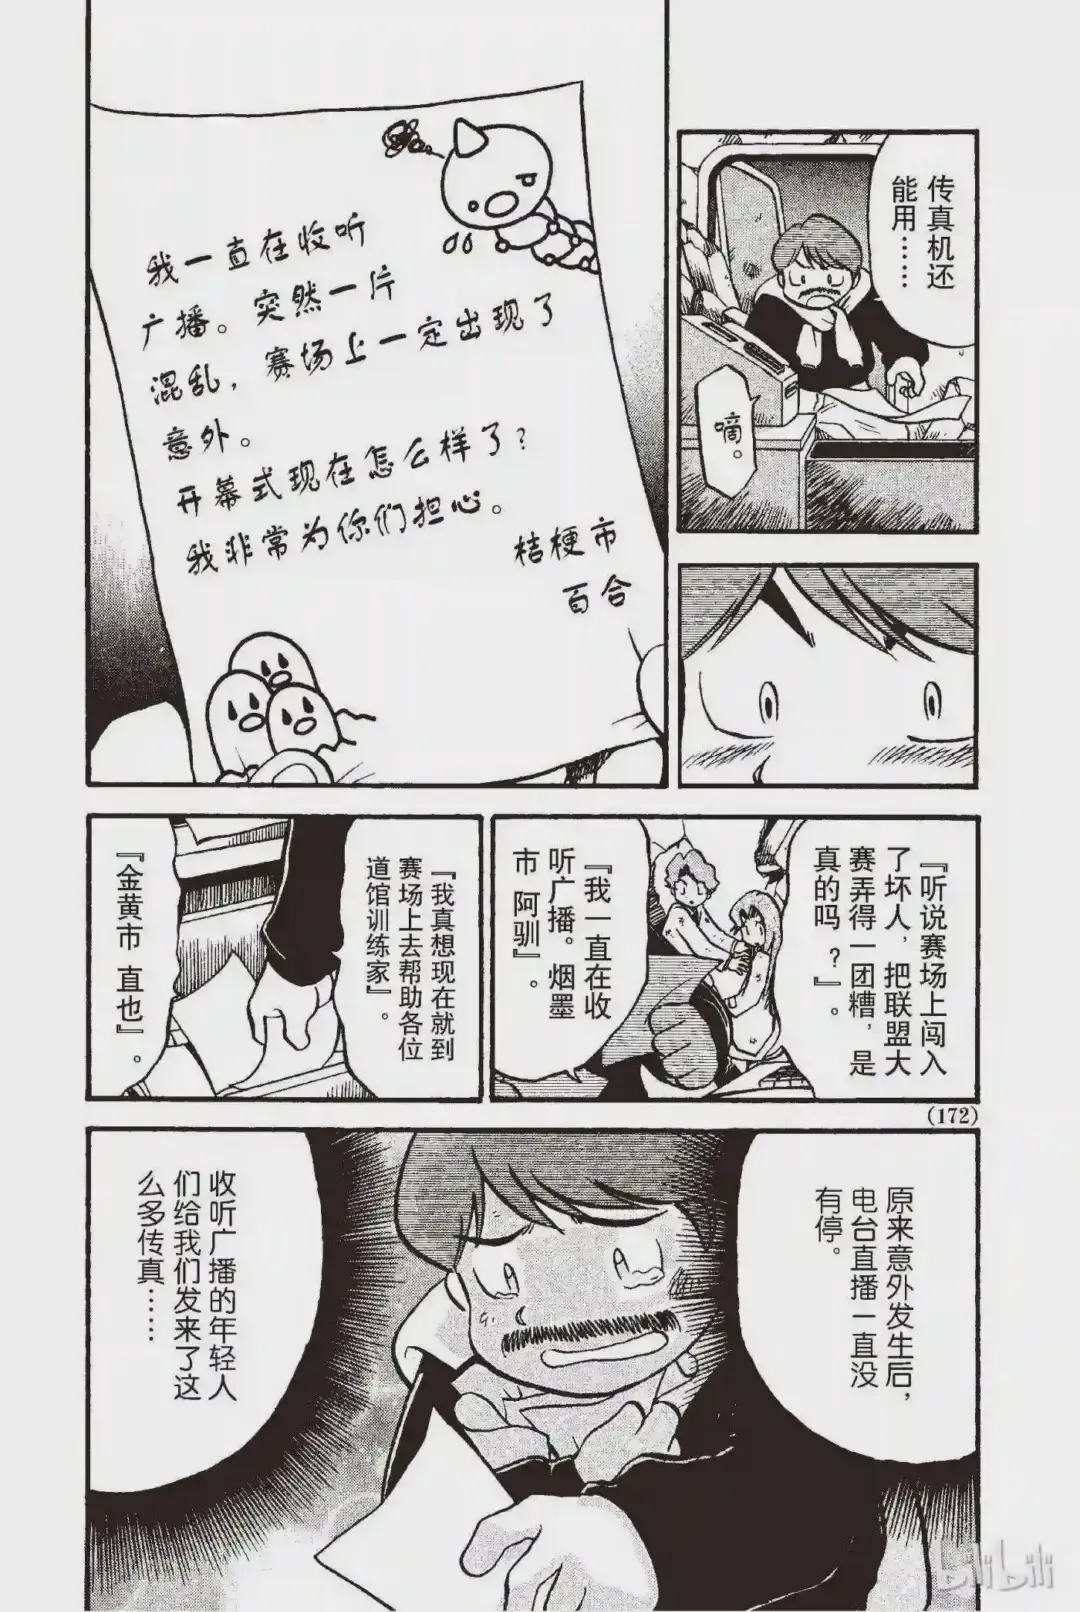 传真机还
能用……
嘀。
我一直在收听
广播。突然一片
混乱，赛场上一定出现了
意外。
开幕式现在怎么样了？
我非常为你们担心。
桔梗市
百合
『听说赛场上闯入
了坏人，把联盟大
赛弄得一团糟，是
真的吗？』。
『我一直在收
听广播。烟墨
市 阿驯』。
『我真想现在就到
赛场上去帮助各位
道馆训练家』。
『金黄市 直也』。
(172)
原来意外发生后，
电台直播一直没
有停。
收听广播的年轻人
们给我们发来了这
么多传真……
bilibili